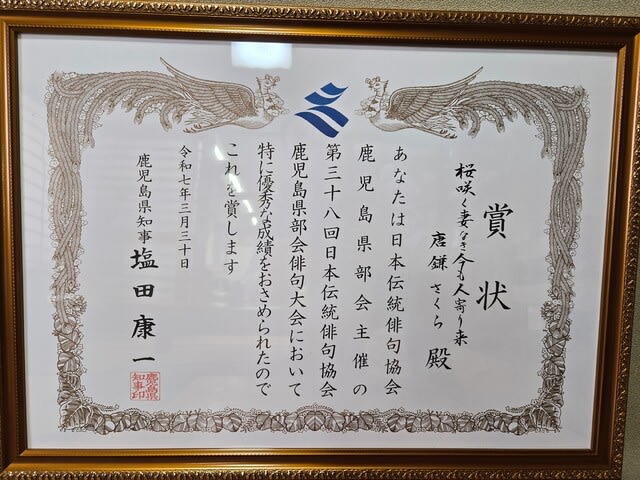 賞状
桜咲く妻なき今も人寄り来
唐鎌さくら 殿
あなたは日本伝統俳句協会
鹿児島県部会主催の
第三十八回日本伝統俳句協会
鹿児島県部会俳句大会において
特に優秀な成績をおさめられたので
これを賞します
令和七年三月三十日
鹿児島県知事 塩田康一
鹿児島県
知事印